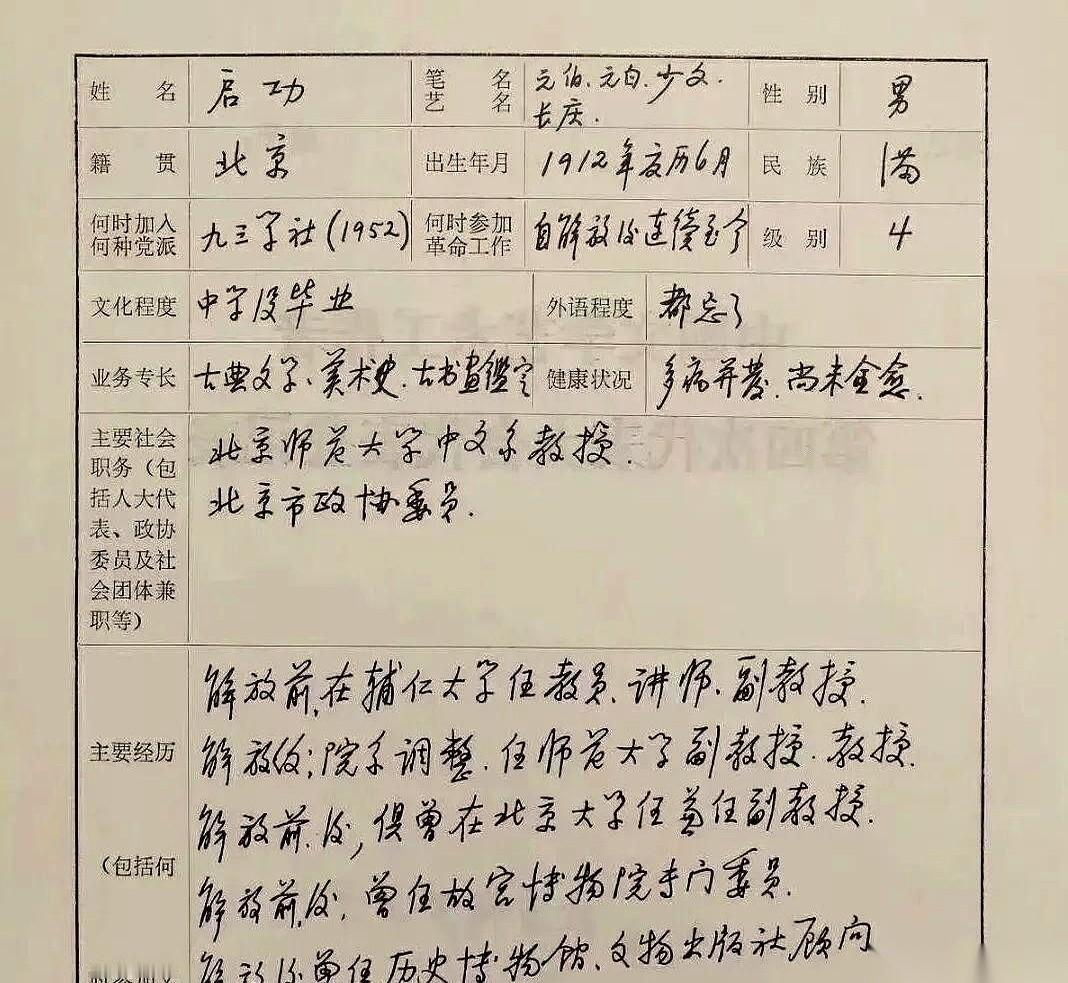 姓名 启功 笔名 艺名 元伯、元白、少文、 性别 男
长庆.
籍贯 北京 出生年月 1912年夏历6月 民族 满
何时加入 九三学社(1952) 何时参加 自解放后连续至今 级别 4
何种党派 革命工作
文化程度 中学没毕业 外语程度 都忘了
业务专长 古典文学、美术史、古书畫鑑定 健康状况 多病并发、尚未全愈.
主要社会 北京师范大学中文系教授.
职务（包 北京市政协委员.
括人大代
表、政协
委员及社
会团体兼
职等）
解放前,在辅仁大学任教员、讲师、副教授.
主要经历 解放后;院系调整.任师范大学副教授、教授.
解放前、后,俱曾在北京大学任兼任副教授.
（包括何
解放前、后,曾任故宫博物院专门委员.
解放后曾任历史博物馆、文物出版社顾问